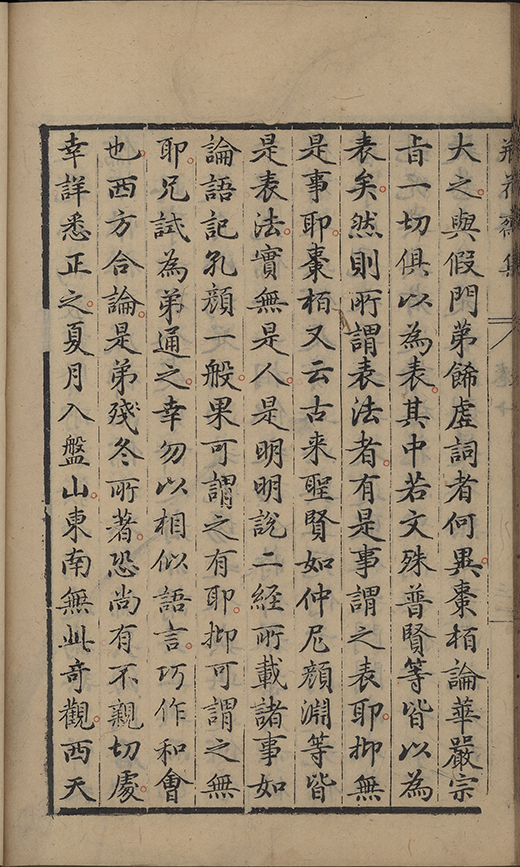 瓶花齋集
卷十
大之與假門第餙虛詞者何異棗栢論華嚴宗
旨一切俱以為表其中若文殊普賢等皆以為
表矣然則所謂表法者有是事謂之表耶抑無
是事耶棗栢又云古来聖賢如仲尼顔淵等皆
是表法實無是人是明明說二經所載諸事如
論語記孔顔一般果可謂之有耶抑可謂之無
耶兄試為弟通之幸勿以相似語言巧作和會
也西方合論是弟殘冬所著恐尚有不親切處
幸詳悉正之夏月入盤山東南無此奇觀西天